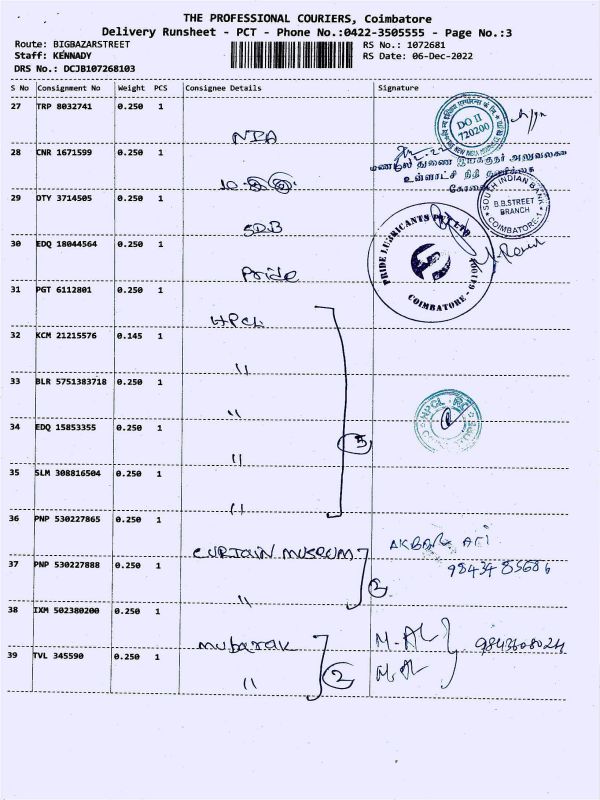 THE PROFESSIONAL COURIERS, Coimbatore
Delivery Runsheet - PCT - Phone No.:0422-3505555 - Page No.:3
Route: BIGBAZARSTREET RS No.: 1072681
Staff: KENNADY RS Date: 06-Dec-2022
DRS No.: DCJB107268103
S No Consignment No Weight PCS Consignee Details Signature
27 TRP 8032741 0.250 1
NIA
DO II
720200
28 CNR 1671599 0.250 1
மண்டல துணை இயக்குநர் அலுவலகம்
உள்ளாட்சி நிதி தணிக்கை
கோவை
29 DTY 3714505 0.250 1
SIB
SOUTH INDIAN BANK
B.B.STREET
BRANCH
COIMBATORE-1
30 EDQ 18044564 0.250 1
Pride
PRIDE LUBRICANTS PVT LTD
COIMBATORE - 641001
31 PGT 6112801 0.250 1
HPCL
32 KCM 21215576 0.145 1
"
33 BLR 5751383718 0.250 1
"
34 EDQ 15853355 0.250 1
"
5
HPCL
35 SLM 308816504 0.250 1
"
36 PNP 530227865 0.250 1
CURTAIN MUSEUM
AKBAR ALI
37 PNP 530227888 0.250 1
"
2
98434 85686
38 IXM 502380200 0.250 1
mubarak
M.AL
9843608024
39 TVL 345590 0.250 1
"
2
M.AL